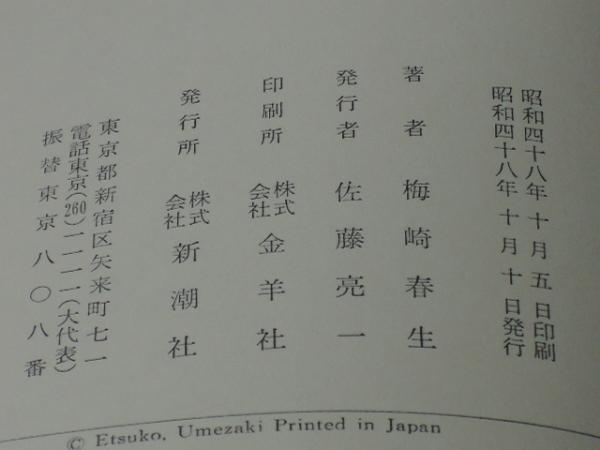 昭和四十八年十月五日印刷
昭和四十八年十月十日発行
著者 梅崎春生
発行者 佐藤亮一
印刷所 株式会社 金羊社
発行所 株式会社 新潮社
東京都新宿区矢来町七一
電話東京(260)一一一一(大代表)
振替東京八〇八番
© Etsuko, Umezaki Printed in Japan